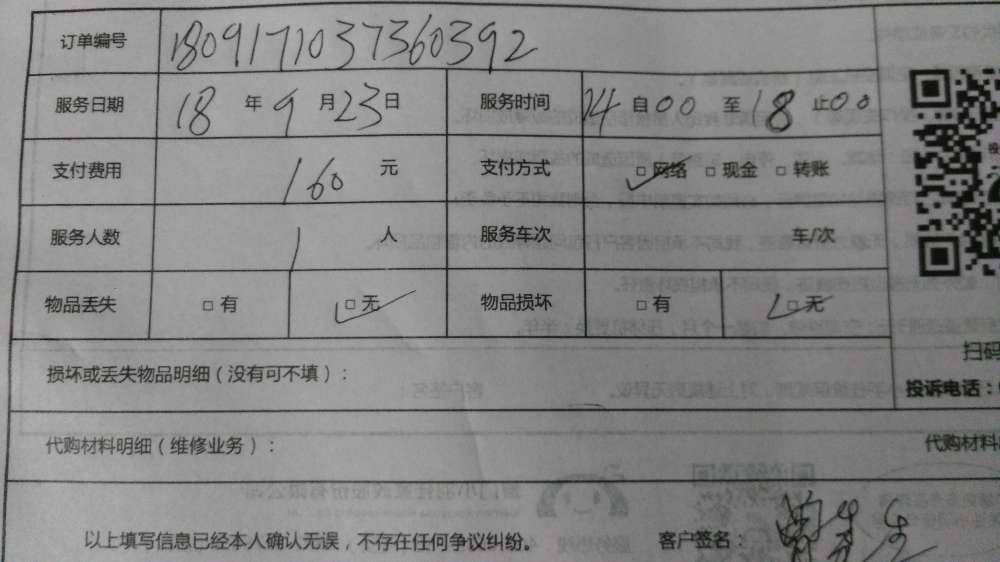 订单编号 1809171037360392
服务日期 18 年 9 月 23 日 服务时间 14 自 00 至 18 止 00
支付费用 160 元 支付方式 □ 网络 □ 现金 □ 转账
服务人数 1 人 服务车次 车/次
物品丢失 □ 有 □ 无 物品损坏 □ 有 □ 无
扫码
损坏或丢失物品明细(没有可不填):
投诉电话:
代购材料明细(维修业务): 代购材料
以上填写信息已经本人确认无误,不存在任何争议纠纷。 客户签名: